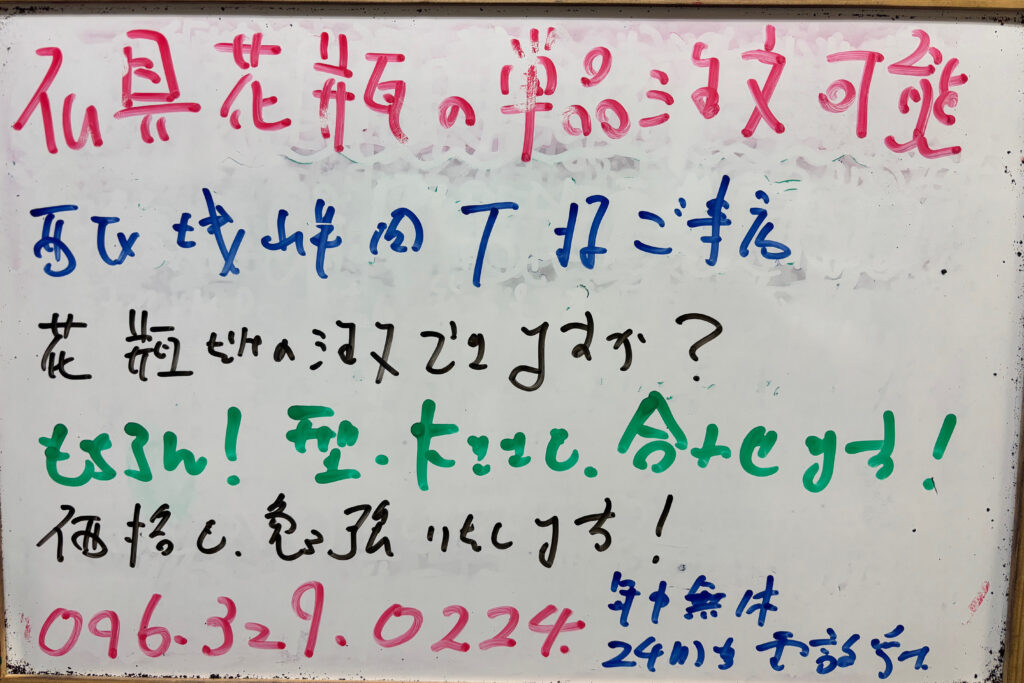 仏具花瓶の単品注文可能
西区城山半田丁 様ご来店
花瓶だけの注文できますか?
もちろん!型・大きさも、合わせます!
価格も、勉強いたします!
096.329.0224.
年中無休
24時間電話受付